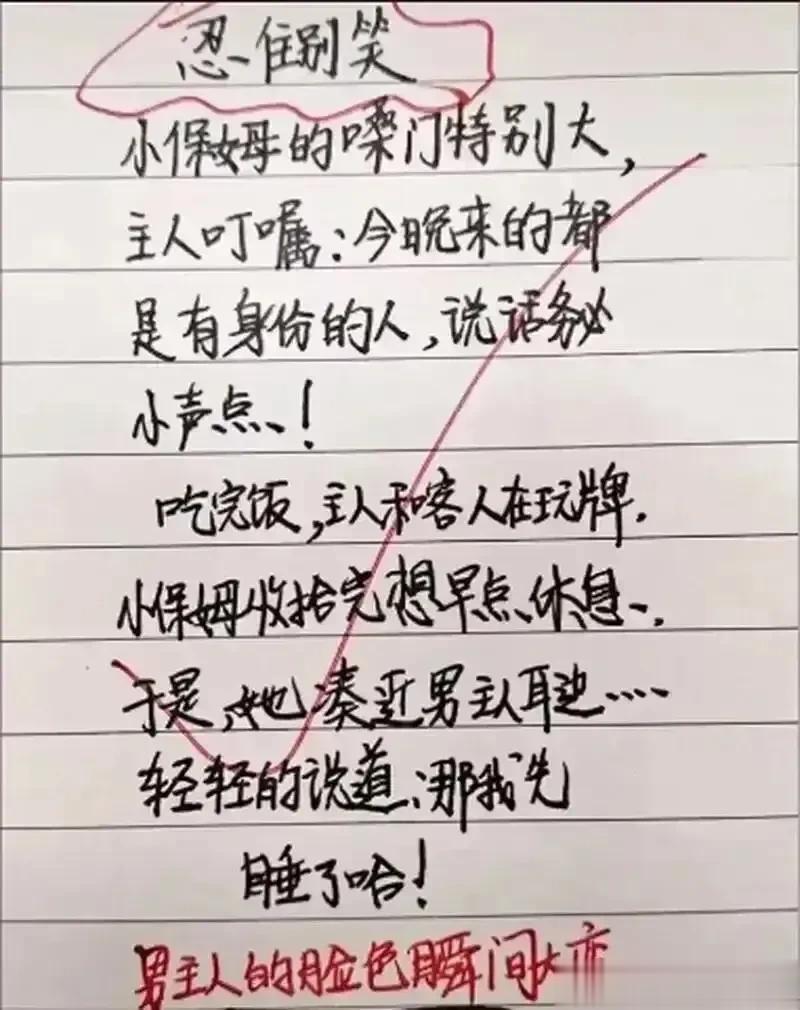 忍住别笑
小保姆的嗓门特别大,
主人叮嘱:今晚来的都
是有身份的人,说话务必
小声点、!
吃完饭,主人和客人在玩牌.
小保姆收拾完想早点休息、.
于是,她凑近男主人耳边....
轻轻的说道:那我先
睡了哈!
男主人的脸色瞬间大变